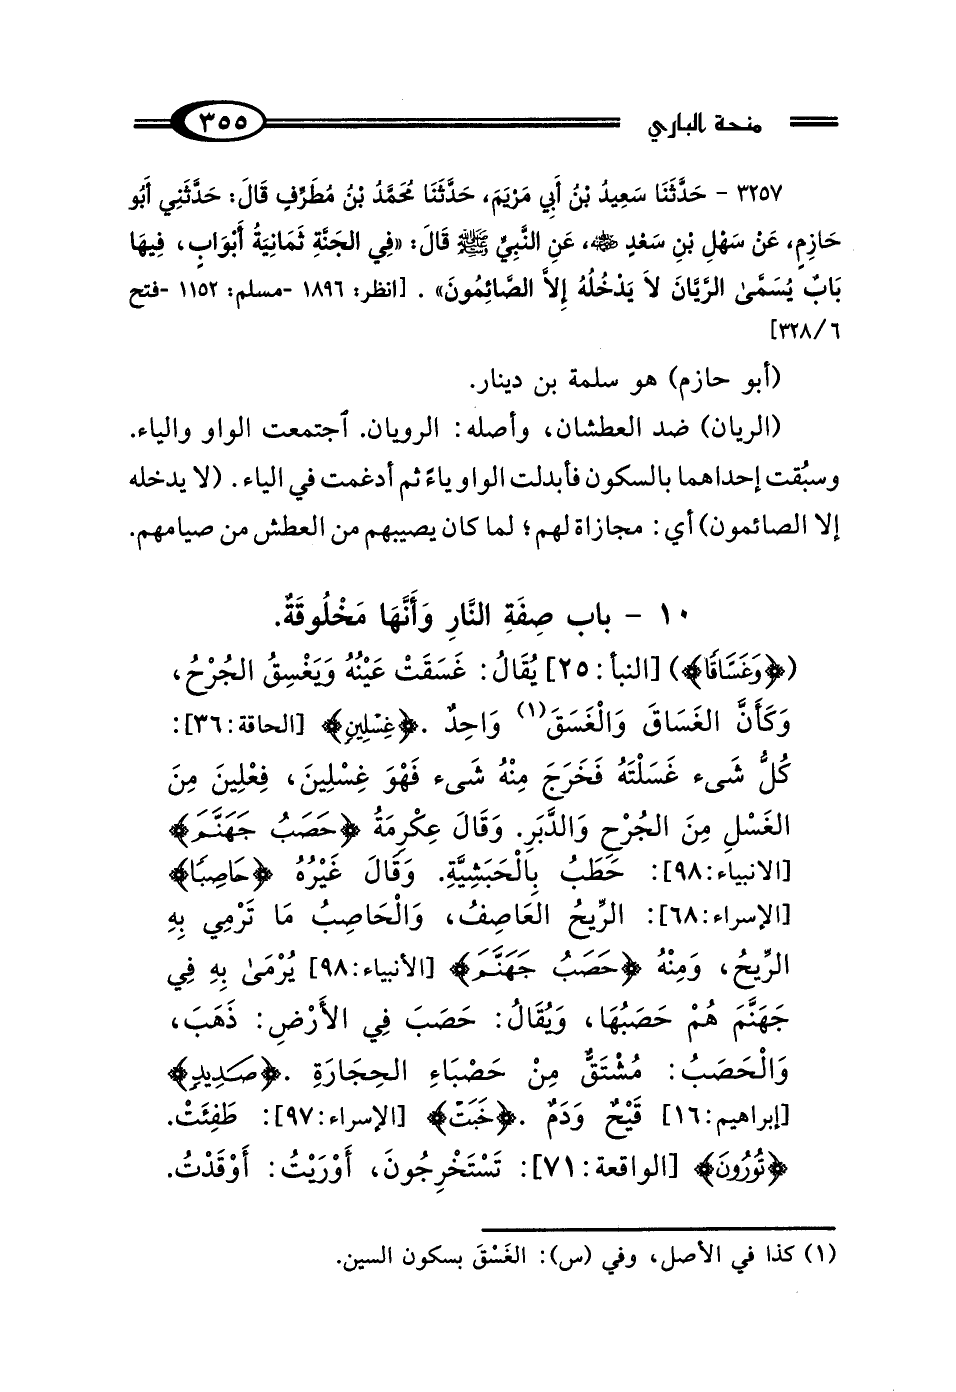 منحة الباري ٣٥٥
٣٢٥٧ - حَدَّثَنَا سَعِيدُ بْنُ أَبِي مَرْيَمَ، حَدَّثَنَا مُحَمَّدُ بْنُ مُطَرِّفٍ قَالَ: حَدَّثَنِي أَبُو
حَازِمٍ، عَنْ سَهْلِ بْنِ سَعْدٍ ﵁، عَنِ النَّبِيِّ ﷺ قَالَ: «فِي الجَنَّةِ ثَمَانِيَةُ أَبْوَابٍ، فِيهَا
بَابٌ يُسَمَّىٰ الرَّيَّانَ لاَ يَدْخُلُهُ إِلاَّ الصَّائِمُونَ» . [انظر: ١٨٩٦ -مسلم: ١١٥٢ -فتح
٦/ ٣٢٨]
(أبو حازم) هو سلمة بن دينار.
(الريان) ضد العطشان، وأصله: الرويان. ٱجتمعت الواو والياء.
وسبُقت إحداهما بالسكون فأبدلت الواو ياءً ثم أدغمت في الياء. (لا يدخله
إلا الصائمون) أي: مجازاة لهم؛ لما كان يصيبهم من العطش من صيامهم.
١٠ - باب صِفَةِ النَّارِ وَأَنَّهَا مَخْلُوقَةٌ.
(﴿وَغَسَّاقًا﴾) [النبأ: ٢٥] يُقَالُ: غَسَقَتْ عَيْنُهُ وَيَغْسِقُ الجُرْحُ،
وَكَأَنَّ الغَسَاقَ وَالْغَسَقَ(١) وَاحِدٌ .﴿غِسْلِينٍ﴾ [الحاقة: ٣٦]:
كُلُّ شَىء غَسَلْتَهُ فَخَرَجَ مِنْهُ شَىء فَهْوَ غِسْلِينَ، فِعْلِينَ مِنَ
الغَسْلِ مِنَ الجُرْحِ وَالدَّبَرِ. وَقَالَ عِكْرِمَةُ ﴿حَصَبُ جَهَنَّمَ﴾
[الانبياء: ٩٨]: حَطَبُ بِالْحَبَشِيَّةِ. وَقَالَ غَيْرُهُ ﴿حَاصِبًا﴾
[الإسراء: ٦٨]: الرِّيحُ العَاصِفُ، وَالْحَاصِبُ مَا تَرْمِي بِهِ
الرِّيحُ، وَمِنْهُ ﴿حَصَبُ جَهَنَّمَ﴾ [الأنبياء: ٩٨] يُرْمَىٰ بِهِ فِي
جَهَنَّمَ هُمْ حَصَبُهَا، وَيُقَالُ: حَصَبَ فِي الأَرْضِ: ذَهَبَ،
وَالْحَصَبُ: مُشْتَقٌّ مِنْ حَصْبَاءِ الحِجَارَةِ .﴿صَدِيدٍ﴾
[إبراهيم: ١٦] قَيْحٌ وَدَمٌ .﴿خَبَتْ﴾ [الإسراء: ٩٧]: طَفِئَتْ.
﴿تُورُونَ﴾ [الواقعة: ٧١]: تَسْتَخْرِجُونَ، أَوْرَيْتُ: أَوْقَدْتُ.
(١) كذا في الأصل، وفي (س): الغَسْقَ بسكون السين.